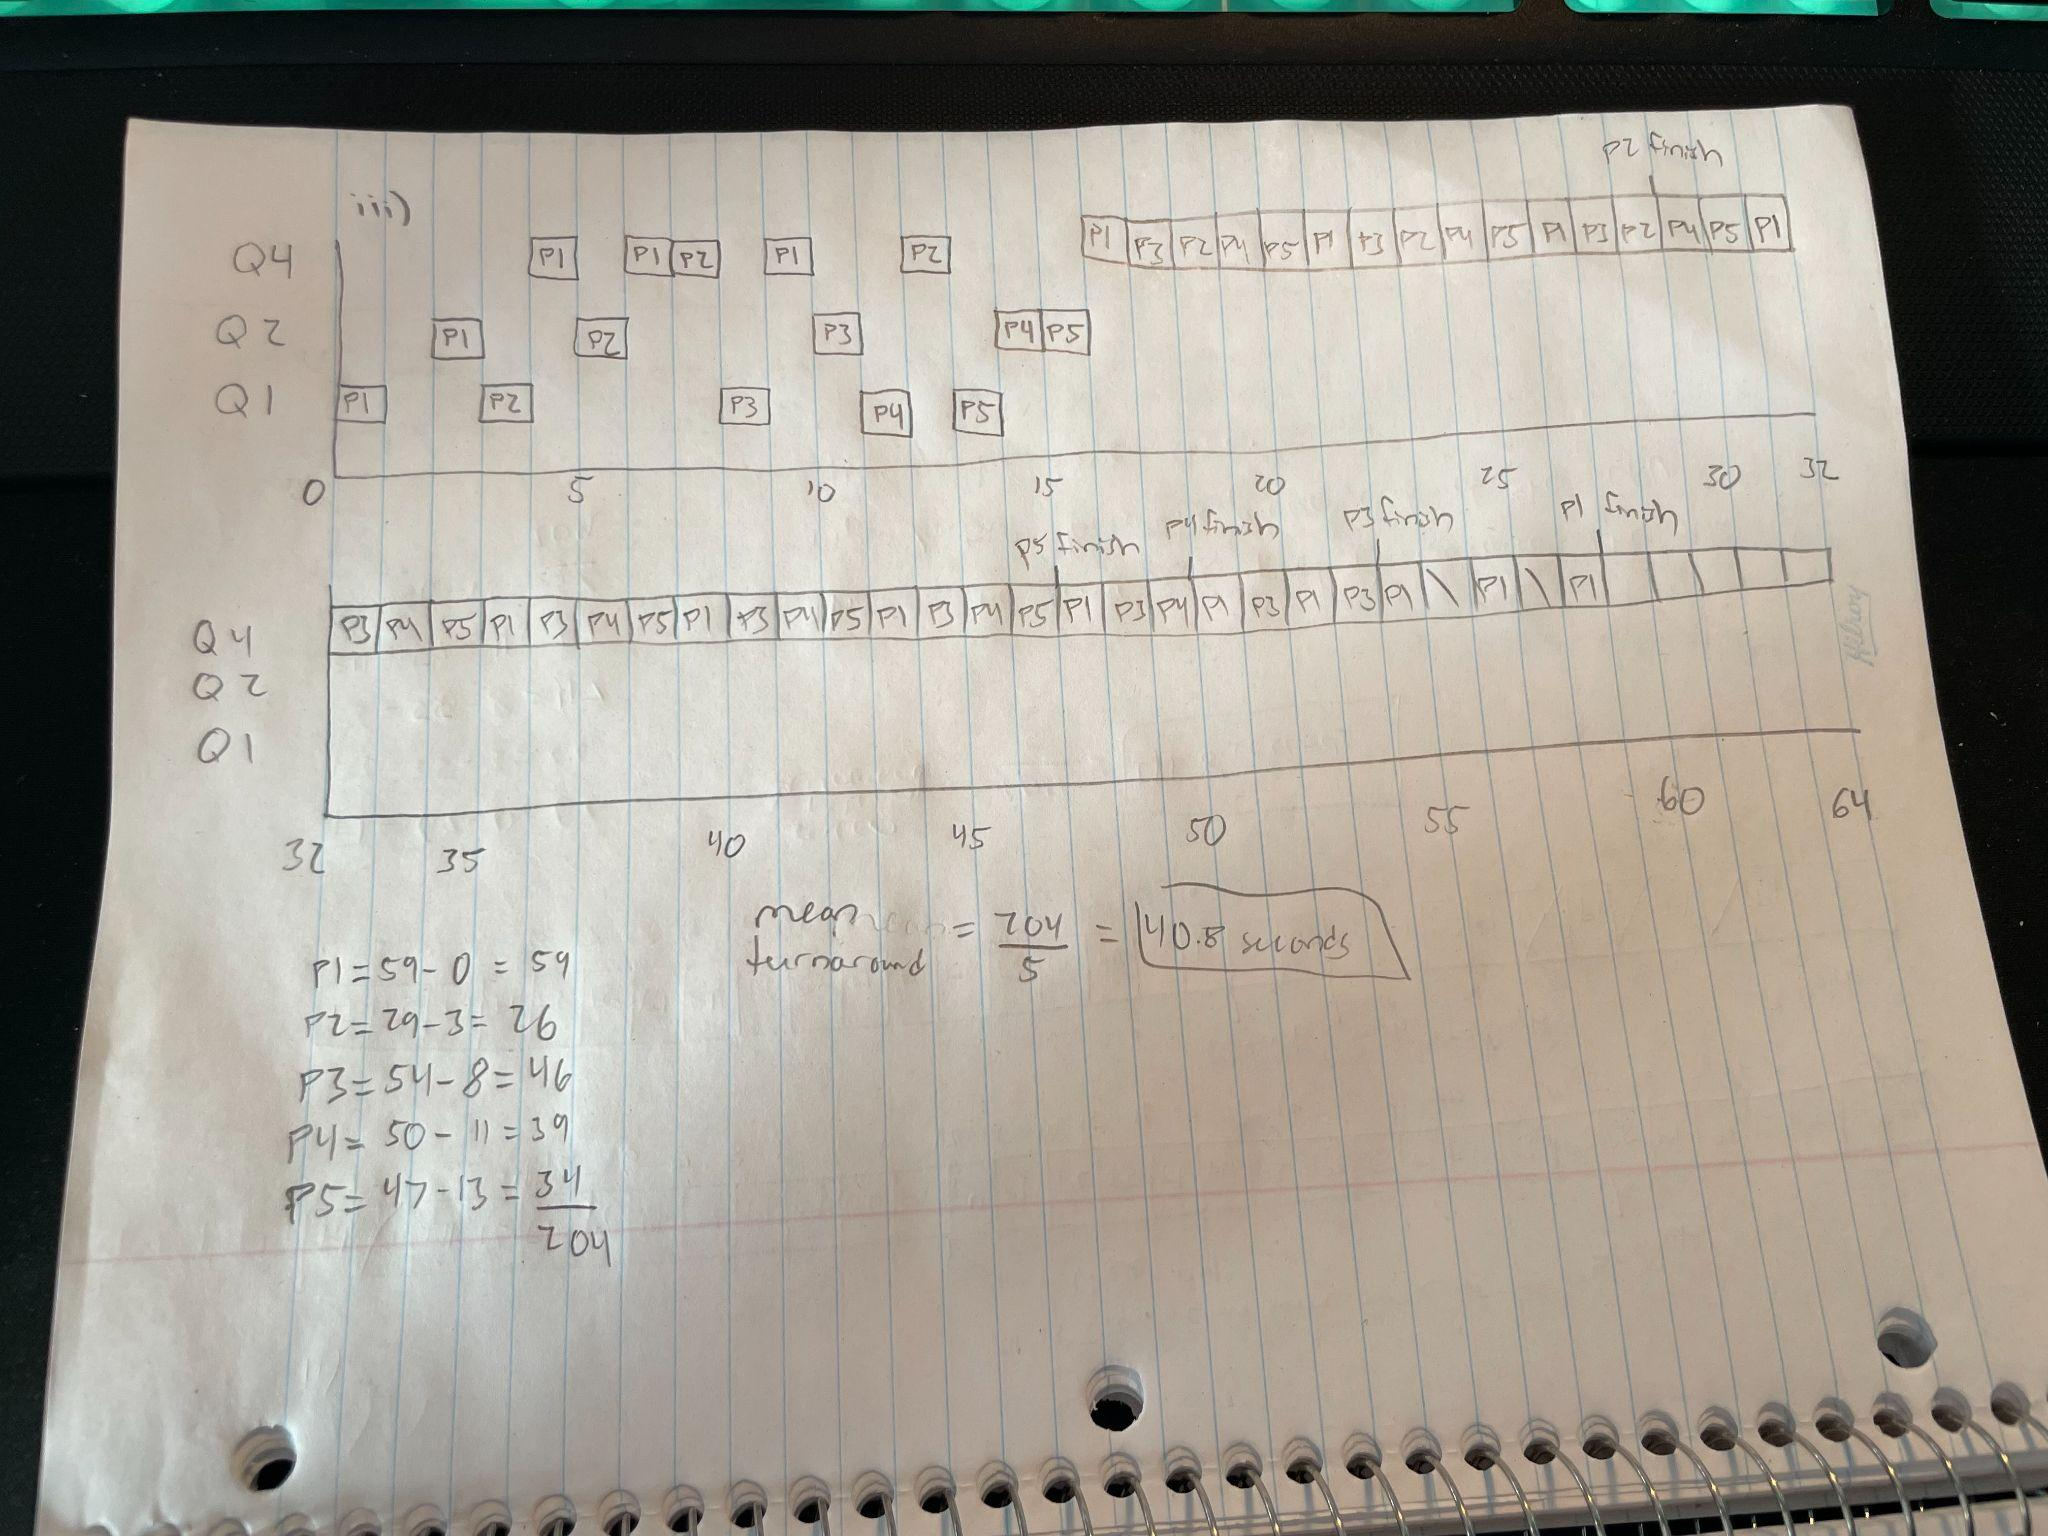 iii)
P2 finish
Q4 P1 P1 P2 P1 P2 P1 P3 P2 P4 P5 P1 P3 P2 P4 P5 P1 P3 P2 P4 P5 P1
Q2 P1 P2 P3 P4 P5
Q1 P1 P2 P3 P4 P5
0 5 10 15 20 25 30 32
P5 finish P4 finish P3 finish P1 finish
Q4 P3 P4 P5 P1 P3 P4 P5 P1 P3 P4 P5 P1 P3 P4 P5 P1 P3 P4 P1 P3 P1 P3 P1 \ P1 \ P1
Q2
Q1
32 35 40 45 50 55 60 64
mean turnaround = 204/5 = 40.8 seconds
P1 = 59 - 0 = 59
P2 = 29 - 3 = 26
P3 = 54 - 8 = 46
P4 = 50 - 11 = 39
P5 = 47 - 13 = 34
204
Hilroy